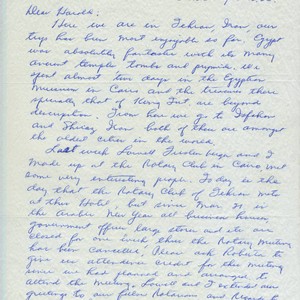 Dear Harold:
Here we are in Tehran Iran, our
trip has been most enjoyable so far, Egypt
was absolutely fantastic with its many
ancient temples tombs and pyramids. We
spent almost two days in the Egyptian
Museum in Cairo and the treasures there
specially that of King Tut are beyond
description. From here we go to Isfahan
and Shiraz Iran both of them are amongst
the oldest cities in the world.
Last week Lowell and I
made up at the Rotary Club in Cairo, met
some very interesting people. Today is the
day that the Rotary Club of Tehran meets
at this Hotel, but since Mar 21 is
the New Year all business houses
government offices large stores etc are
closed for one week thus the Rotary Meeting
has been cancelled,
give us attendance credit for this meeting
since we had planned and arranged to
attend the meeting. Lowell and I extend our
greetings to our fellow Rotarians and